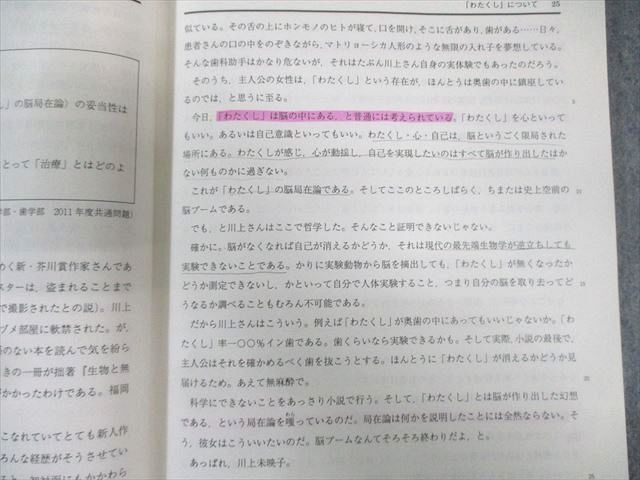 「わたくし」について 25
似ている。その舌の上にホンモノのヒトが寝て、口を開け、そこに舌があり、歯がある……日々、
患者さんの口の中をのぞきながら、マトリョーシカ人形のような無限の入れ子を夢想している。
そんな歯科助手はかなり危ないが、それはたぶん川上さん自身の実体験でもあったのだろう。
そのうち、主人公の女性は、「わたくし」という存在が、ほんとうは奥歯の中に鎮座してい
るのでは、と思うに至る。
5
今日、「わたくし」は脳の中にある、と普通には考えられている。「わたくし」を心といって
もいい。あるいは自己意識といってもいい。わたくし・心・自己は、脳というごく限局された
場所にある。わたくしが感じ、心が動揺し、自己を実現したいのはすべて脳が作り出したはか
ない何ものかに過ぎない。
これが「わたくし」の脳局在論である。そしてここのところしばらく、ちまたは史上空前の
10
脳ブームである。
でも、と川上さんはここで哲学した。そんなこと証明できないじゃない。
確かに。脳がなくなれば自己が消えるかどうか、それは現代の最先端生物学が逆立ちしても
実験できないことである。かりに実験動物から脳を摘出しても、「わたくし」が無くなったか
どうか測定できないし、かといって自分で人体実験すること、つまり自分の脳を取り去ってど
15
うなるか調べることもむろん不可能である。
だから川上さんはこういう。例えば「わたくし」が奥歯の中にあってもいいじゃないか。「わ
たくし」率一〇〇％イン歯である。歯くらいなら実験できるかも。そして実際、小説の最後で、
主人公はそれを確かめるべく歯を抜こうとする。ほんとうに「わたくし」が消えるかどうか見
届けるため。あえて無麻酔で。
20
科学にできないことをあっさり小説で行う。そして、「わたくし」とは脳が作り出した幻想
である、という局在論を嗤っているのだ。局在論は何かを説明したことには全然ならない。そ
う、彼女はこういいたいのだ。脳ブームなんてそろそろ終わりだよ、と。
あっぱれ、川上未映子。
25
し」の脳局在論）の妥当性は
とって「治療」とはどのよ
学部・歯学部 2011年度共通問題）
めく新・芥川賞作家さんであ
スターは、盗まれることまで
で撮影されたとの説）。川上
ブメ部屋に軟禁された。が、
係のない本を読んで気を紛ら
きの一冊が拙著『生物と無
かかったわけである。福岡
こなれていてとても新人作
ろんな経歴がそうさせてい